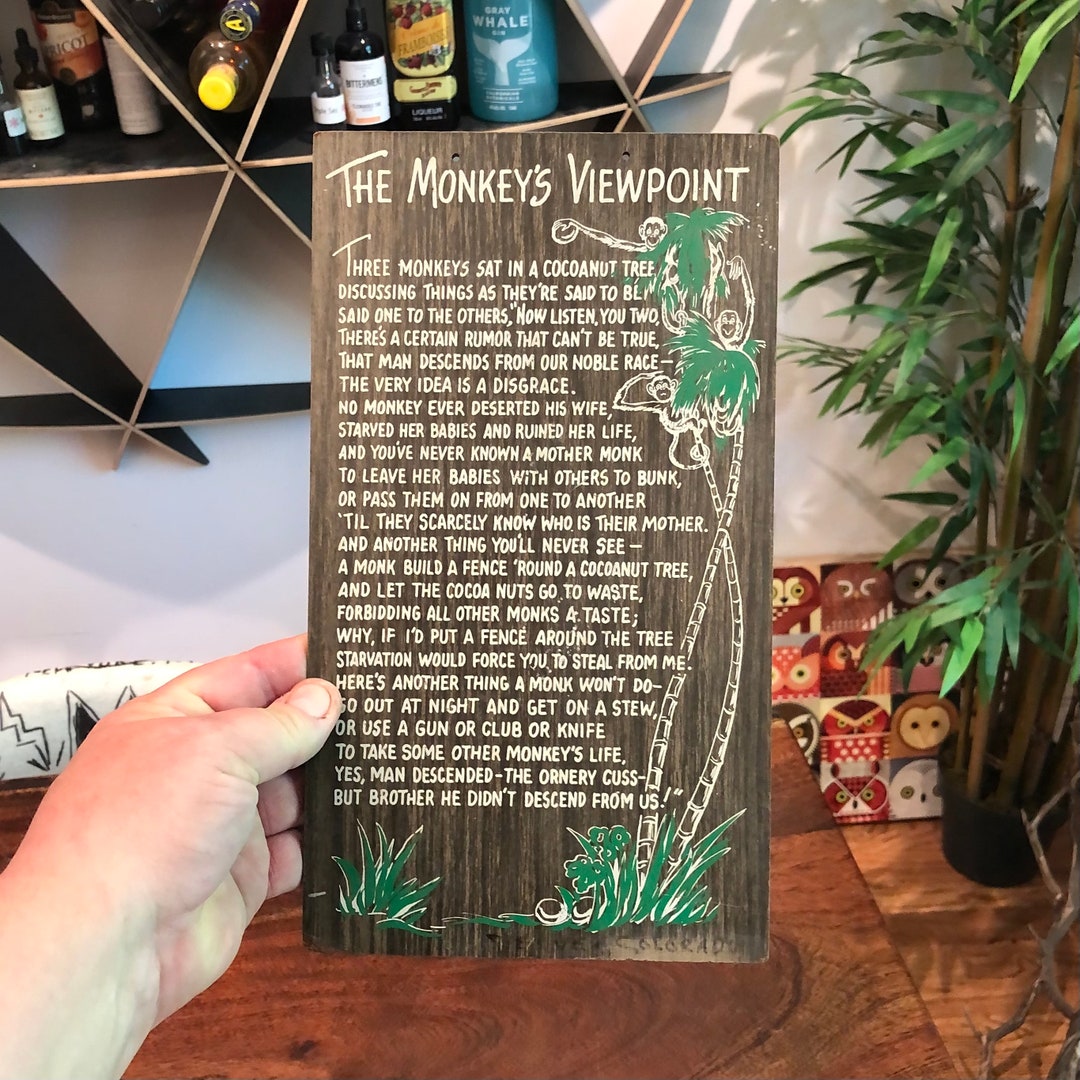 THE MONKEY'S VIEWPOINT
THREE MONKEYS SAT IN A COCOANUT TREE
DISCUSSING THINGS AS THEY'RE SAID TO BE.
SAID ONE TO THE OTHERS, "NOW LISTEN, YOU TWO,
THERE'S A CERTAIN RUMOR THAT CAN'T BE TRUE,
THAT MAN DESCENDS FROM OUR NOBLE RACE—
THE VERY IDEA IS A DISGRACE.
NO MONKEY EVER DESERTED HIS WIFE,
STARVED HER BABIES AND RUINED HER LIFE,
AND YOU'VE NEVER KNOWN A MOTHER MONK
TO LEAVE HER BABIES WITH OTHERS TO BUNK,
OR PASS THEM ON FROM ONE TO ANOTHER
'TIL THEY SCARCELY KNOW WHO IS THEIR MOTHER.
AND ANOTHER THING YOU'LL NEVER SEE—
A MONK BUILD A FENCE 'ROUND A COCOANUT TREE,
AND LET THE COCOA NUTS GO TO WASTE,
FORBIDDING ALL OTHER MONKS A TASTE;
WHY, IF I'D PUT A FENCE AROUND THE TREE
STARVATION WOULD FORCE YOU TO STEAL FROM ME.
HERE'S ANOTHER THING A MONK WON'T DO—
GO OUT AT NIGHT AND GET ON A STEW,
OR USE A GUN OR CLUB OR KNIFE
TO TAKE SOME OTHER MONKEY'S LIFE,
YES, MAN DESCENDED—THE ORNERY CUSS—
BUT BROTHER HE DIDN'T DESCEND FROM US!"
COLORADO
GRAY
WHALE
GIN
FRAMBOISE
LIQUEUR
BITTERMENS